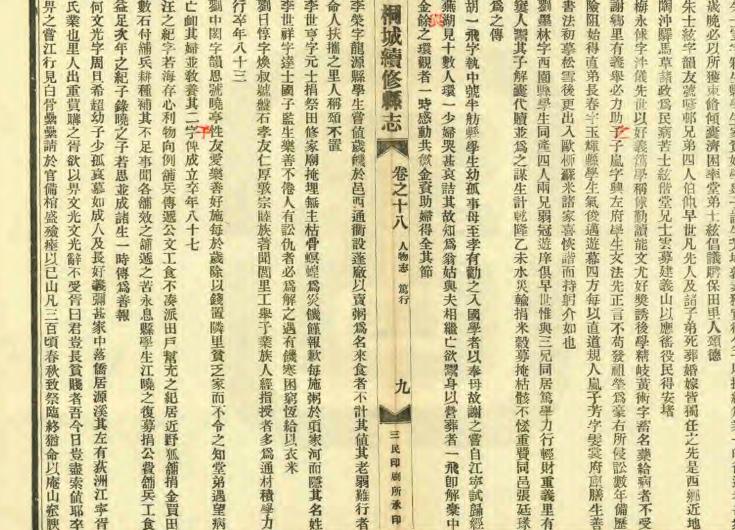 歲晚必以所獲束脩傾囊濟困率堂弟士紘倡議購保田里人頌德
朱士紘字韻友號 邨兄弟四人伯仲早世凡先人及諸子弟死葬婚嫁皆獨任之先是西鄉近地
闢沖驛馬草諸政爲民病苦士紘偕堂兄士雲募建義山以應徭役民得安堵
梅永俅字沖儀先世以好義篤學稱俅勤讀能文尤好獎誘後學精岐黃術字畜名藥給病者不受
謝鄉里有義舉必力助子子嵐字興左府學生女法先正言不苟發祖塋爲豪右所侵訟數年備歷
險阻始得直弟長春字玉 縣學生氣後邁遊幕四方每以直道規人嵐子芳字 裳府庠膳生善
書法初摹松雪後更出入歐柳蘇米諸家喜恢諧而持躬介如也
劉墨林字西園縣學生同產四人兩兄弱冠遊庠俱早世惟與三兄同居篤學力行輕財重義里有
窶人鬻其子解囊代贖並爲之謀生計乾隆乙未水災輸捐米穀募掩枯骸不恡重費同邑張廷瑑
爲之傳
胡一飛字執中號半舫縣學生幼孤事母至孝有勸之入國學者以奉母故謝之嘗自江寧試歸經
蕪湖見十數人環一少婦哭甚哀詰其故知爲翁姑與夫相繼亡欲鬻身以營葬者一飛卽解橐中
金餘之環觀者一時感動共歛金資助婦得全其節
桐城續修縣志 卷之十八 人物志 篤行 九 三民印刷所承印
李榮字龍源縣學生嘗值歲饑於邑西通衢設蓬廠以賣粥爲名來食者不計其值其老弱難行者
命人扶攜之里人稱頌不置
李世亨字元士捐祭田修家廟掩埋無主枯骨螟蝗爲災饑饉報歉每施粥於項家河而隱其名姓
李世祥字達士國子監生樂善不倦人有訟仇者必爲解之遇有饑寒困窮恆給以衣米
劉日惇字煥叔號盤石孝友仁厚敦宗睦族著聞閭里工舉子業族人經指授者多爲通材積學力
行卒年八十三
劉中閎字韻思號曉亭性友愛樂善好施每於歲除以錢置隣里貧乏家而不令之知堂弟遇望病
亡衈其婦並敎養其二字俾成立卒年八十七
汪之紀字若海存心利物向例舖兵傳遞公文工食不凑派田戸幫充之紀居近野狐舖捐金買田
數石付舖兵耕種補其不足事聞各舖效之舖遞之苦永息縣學生江曉之復募捐公費舖兵工食
益足次年之紀子錄曉之子若思並成諸生一時傳爲善報
何文光字周旦希超幼子少孤哀慕如成人及長好義彌甚家中落僑居源溪其左有荻洲江寧胥
氏業也里人出重貲購之胥欲以畀文光文光辭不受胥曰君豈長貧賤者吾今日豈盡索值耶卒
畀之嘗江行見白骨纍纍請於官備棺盛殮瘞以已山凡三百頃春秋致祭臨終猶命以庵山奁